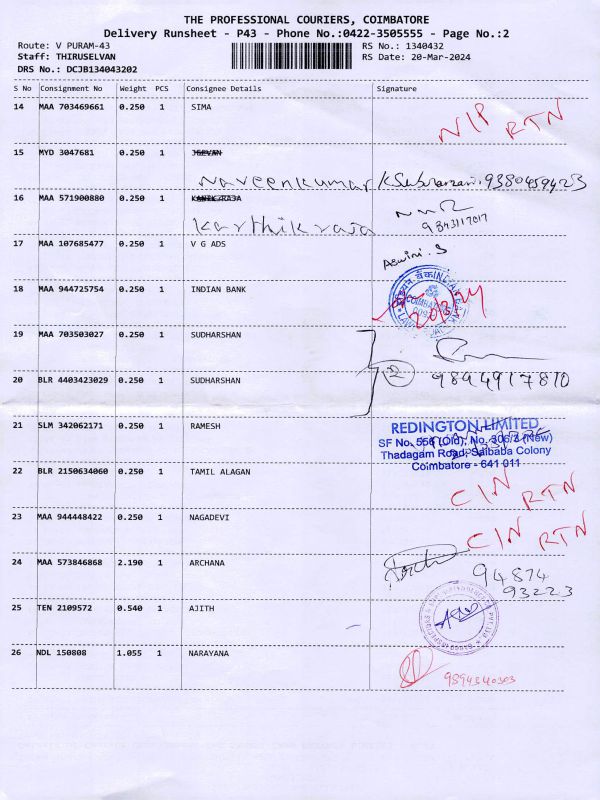 THE PROFESSIONAL COURIERS, COIMBATORE
Delivery Runsheet - P43 - Phone No.:0422-3505555 - Page No.:2
Route: V PURAM-43
RS No.: 1340432
Staff: THIRUSELVAN
RS Date: 20-Mar-2024
DRS No.: DCJB134043202
S No Consignment No Weight PCS Consignee Details Signature
14 MAA 703469661 0.250 1 SIMA
N/P RTN
15 MYD 3047681 0.250 1 JEEVAN
Naveenkumar K Subramani. 9380459423
16 MAA 571900880 0.250 1
Karthik raja
9843117017
17 MAA 107685477 0.250 1 V G ADS
Aswini. S
18 MAA 944725754 0.250 1 INDIAN BANK
19 MAA 703503027 0.250 1 SUDHARSHAN
2
20 BLR 4403423029 0.250 1 SUDHARSHAN
9894917810
21 SLM 342062171 0.250 1 RAMESH
REDINGTON LIMITED
SF No. 556 (Old), No. 306/2 (New)
Thadagam Road, Saibaba Colony
Coimbatore - 641 011
22 BLR 2150634060 0.250 1 TAMIL ALAGAN
C/N RTN
23 MAA 944448422 0.250 1 NAGADEVI
C/N RTN
24 MAA 573846868 2.190 1 ARCHANA
94874
93223
25 TEN 2109572 0.540 1 AJITH
26 NDL 150808 1.055 1 NARAYANA
9894340303